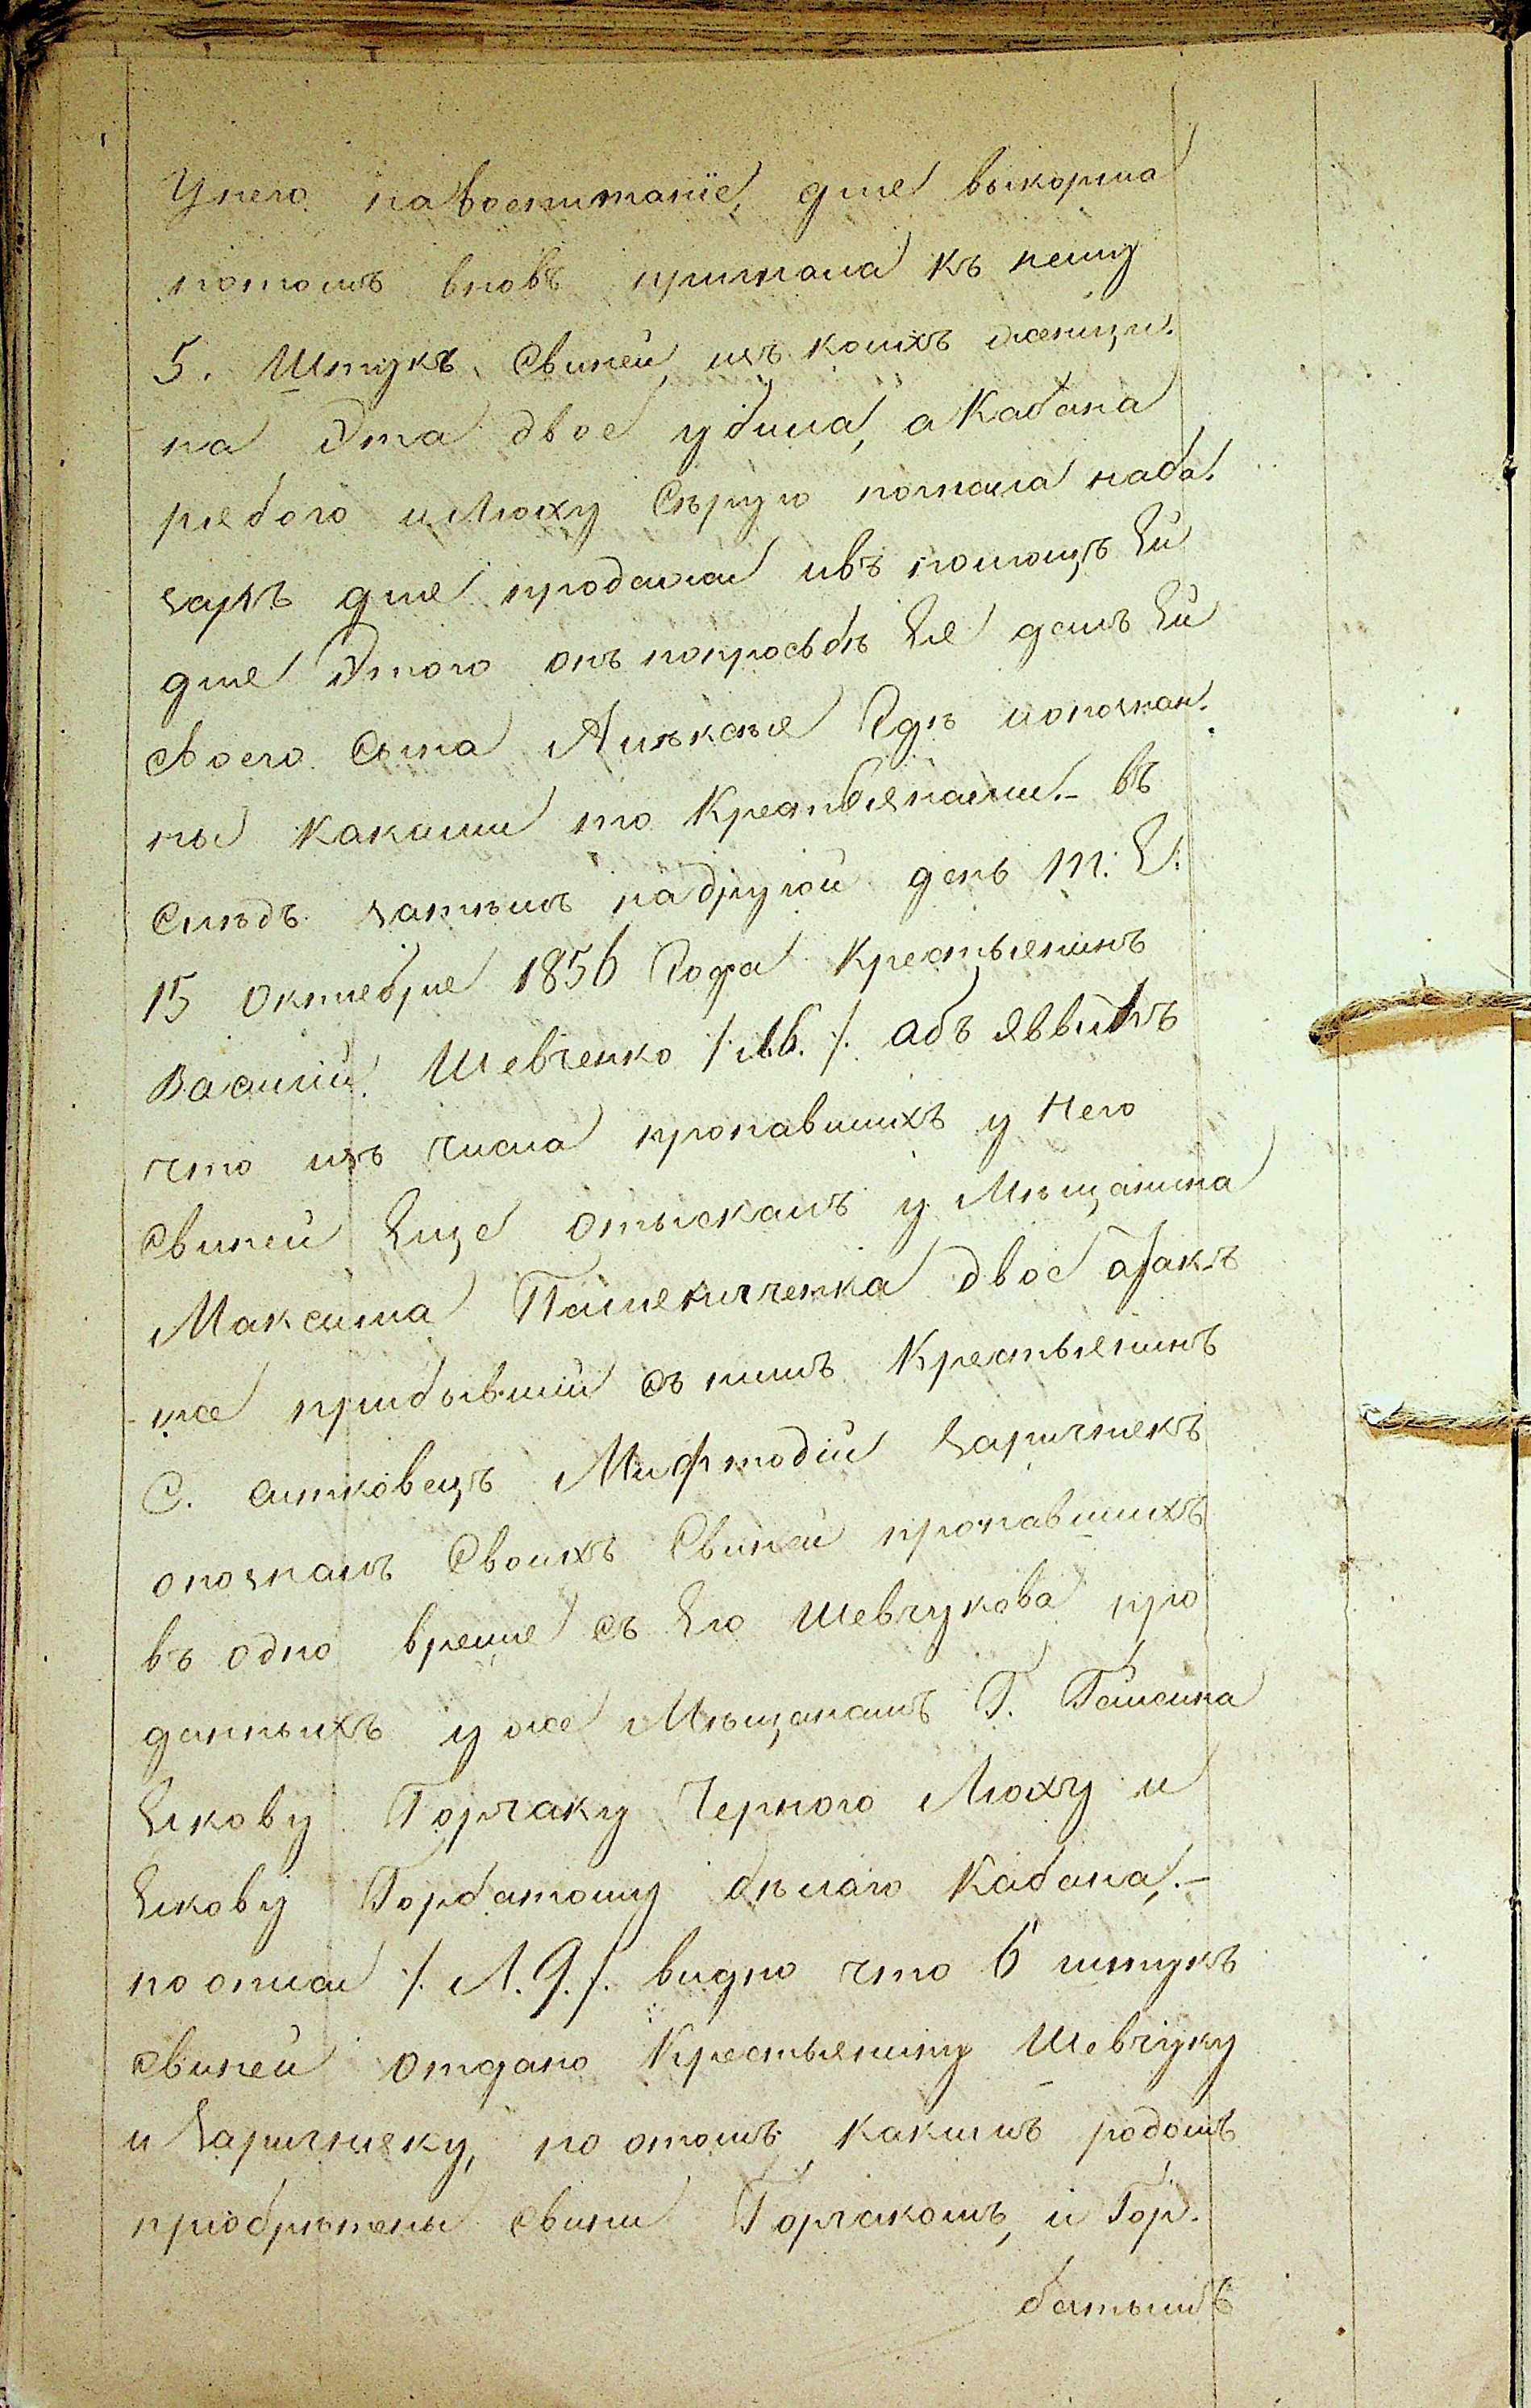 Унего навоспитание, для выкорма
потомъ вновъ пригнала къ нему
5. Штукъ Свиней изъ коихъ женщи-
на Эта двое убила, а Кабана
рябого и Люху Сѣрую погнала наба-
заръ для продажи ивъ помощъ Ей
для Этого онъ попросьбѣ Ея далъ Ей
своего Сына Алѣксѣя Гдѣ иопознан-
ны какими то Крестьянами.- въ
слѣдъ затѣмъ надругой день т: Е:
15 Октября 1856 Года Крестьянинъ
Василий Шевченко /: л.6. /. абъ яввилъ
что изъ числа пропавшихъ у Него
свиней Еще отыскалъ у Мѣщанина
Максима двое атакъ
же прибывший съ нимъ Крестьянинъ
С. Ситковецъ Мифтодій Заричнякъ
опозналъ Своихъ Свиней пропавшихъ
въ одно время съ Его Шевчукова про
данныхъ уже Мѣщанамъ Г. Гайсина
Якову Горчаку Черного Люху и
Якову Горбатому бѣлаго Кабана,.-
по описи /. Л. 9. /. видно что 6 штукъ
свиней отдано Крестьянину Шевчуку
и Заричняку, но отомъ какимъ родомъ
приобрѣтены свини Горчакомъ, и Гор-
батымъ